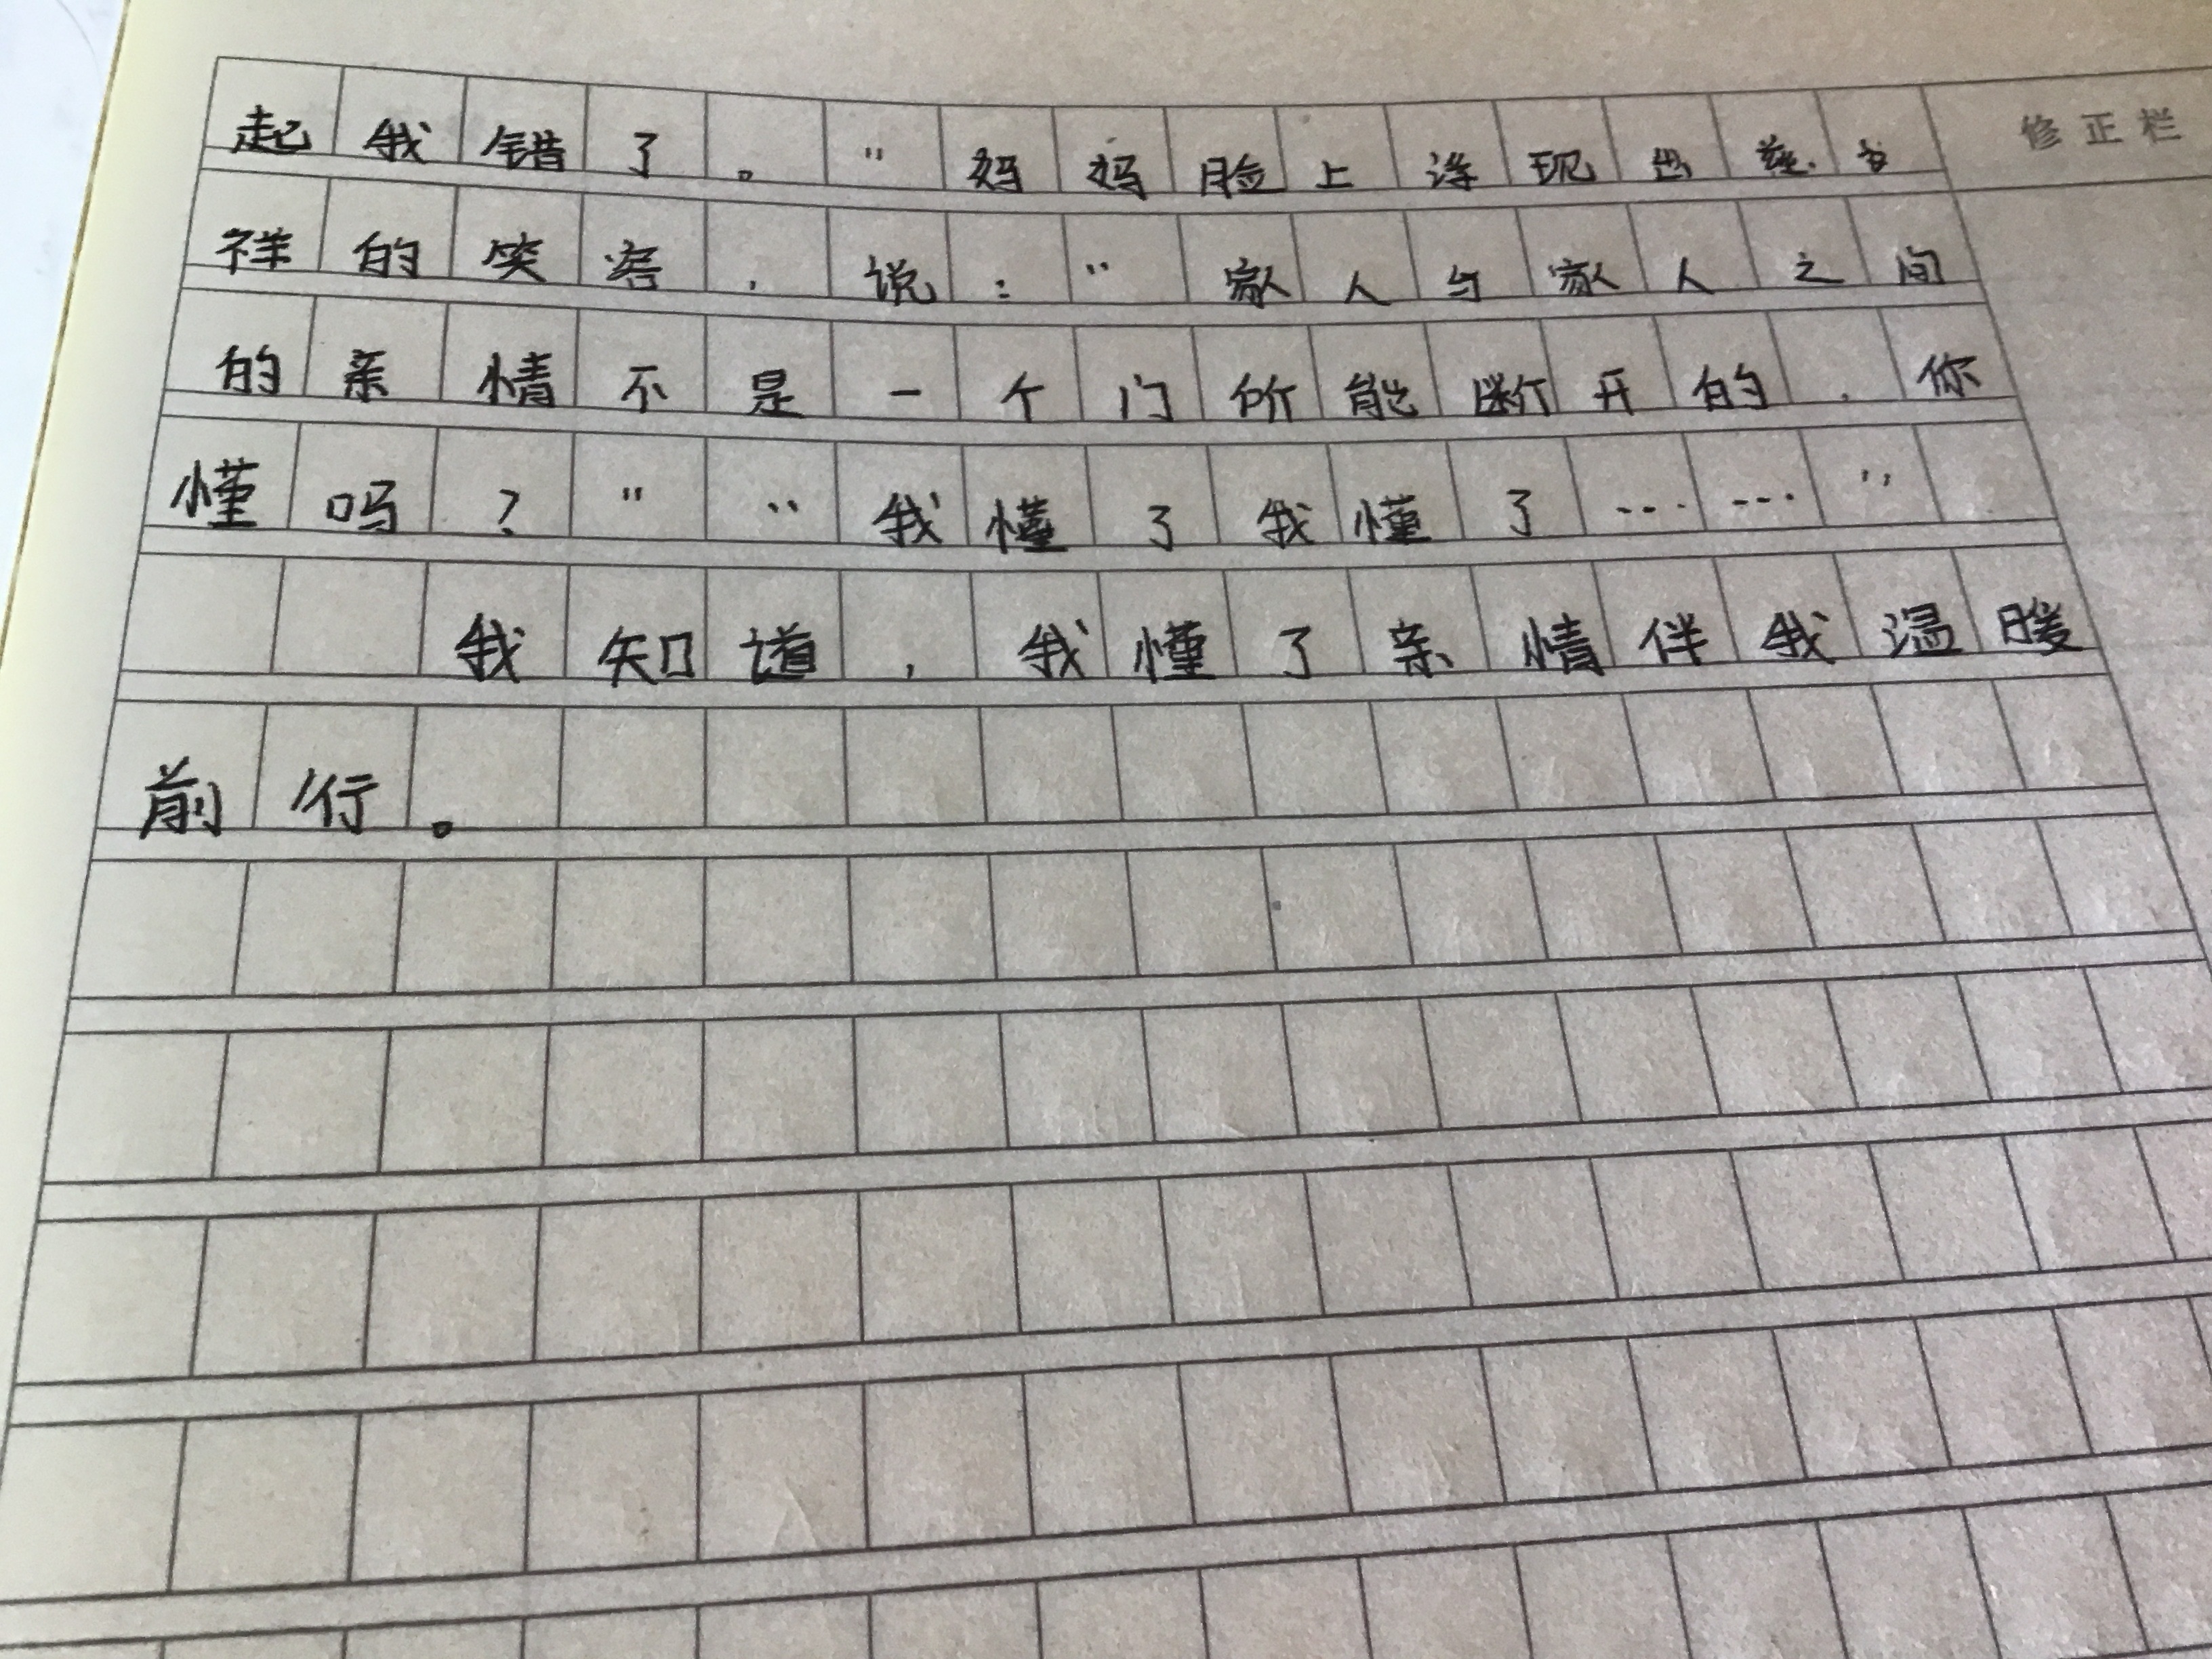 起我错了。"妈妈脸上浮现出慈
修正栏
祥的笑容,说:"家人与家人之间
的亲情不是一个门所能断开的.你
懂吗?""我懂了我懂了……"
我知道,我懂了亲情伴我温暖
前行。